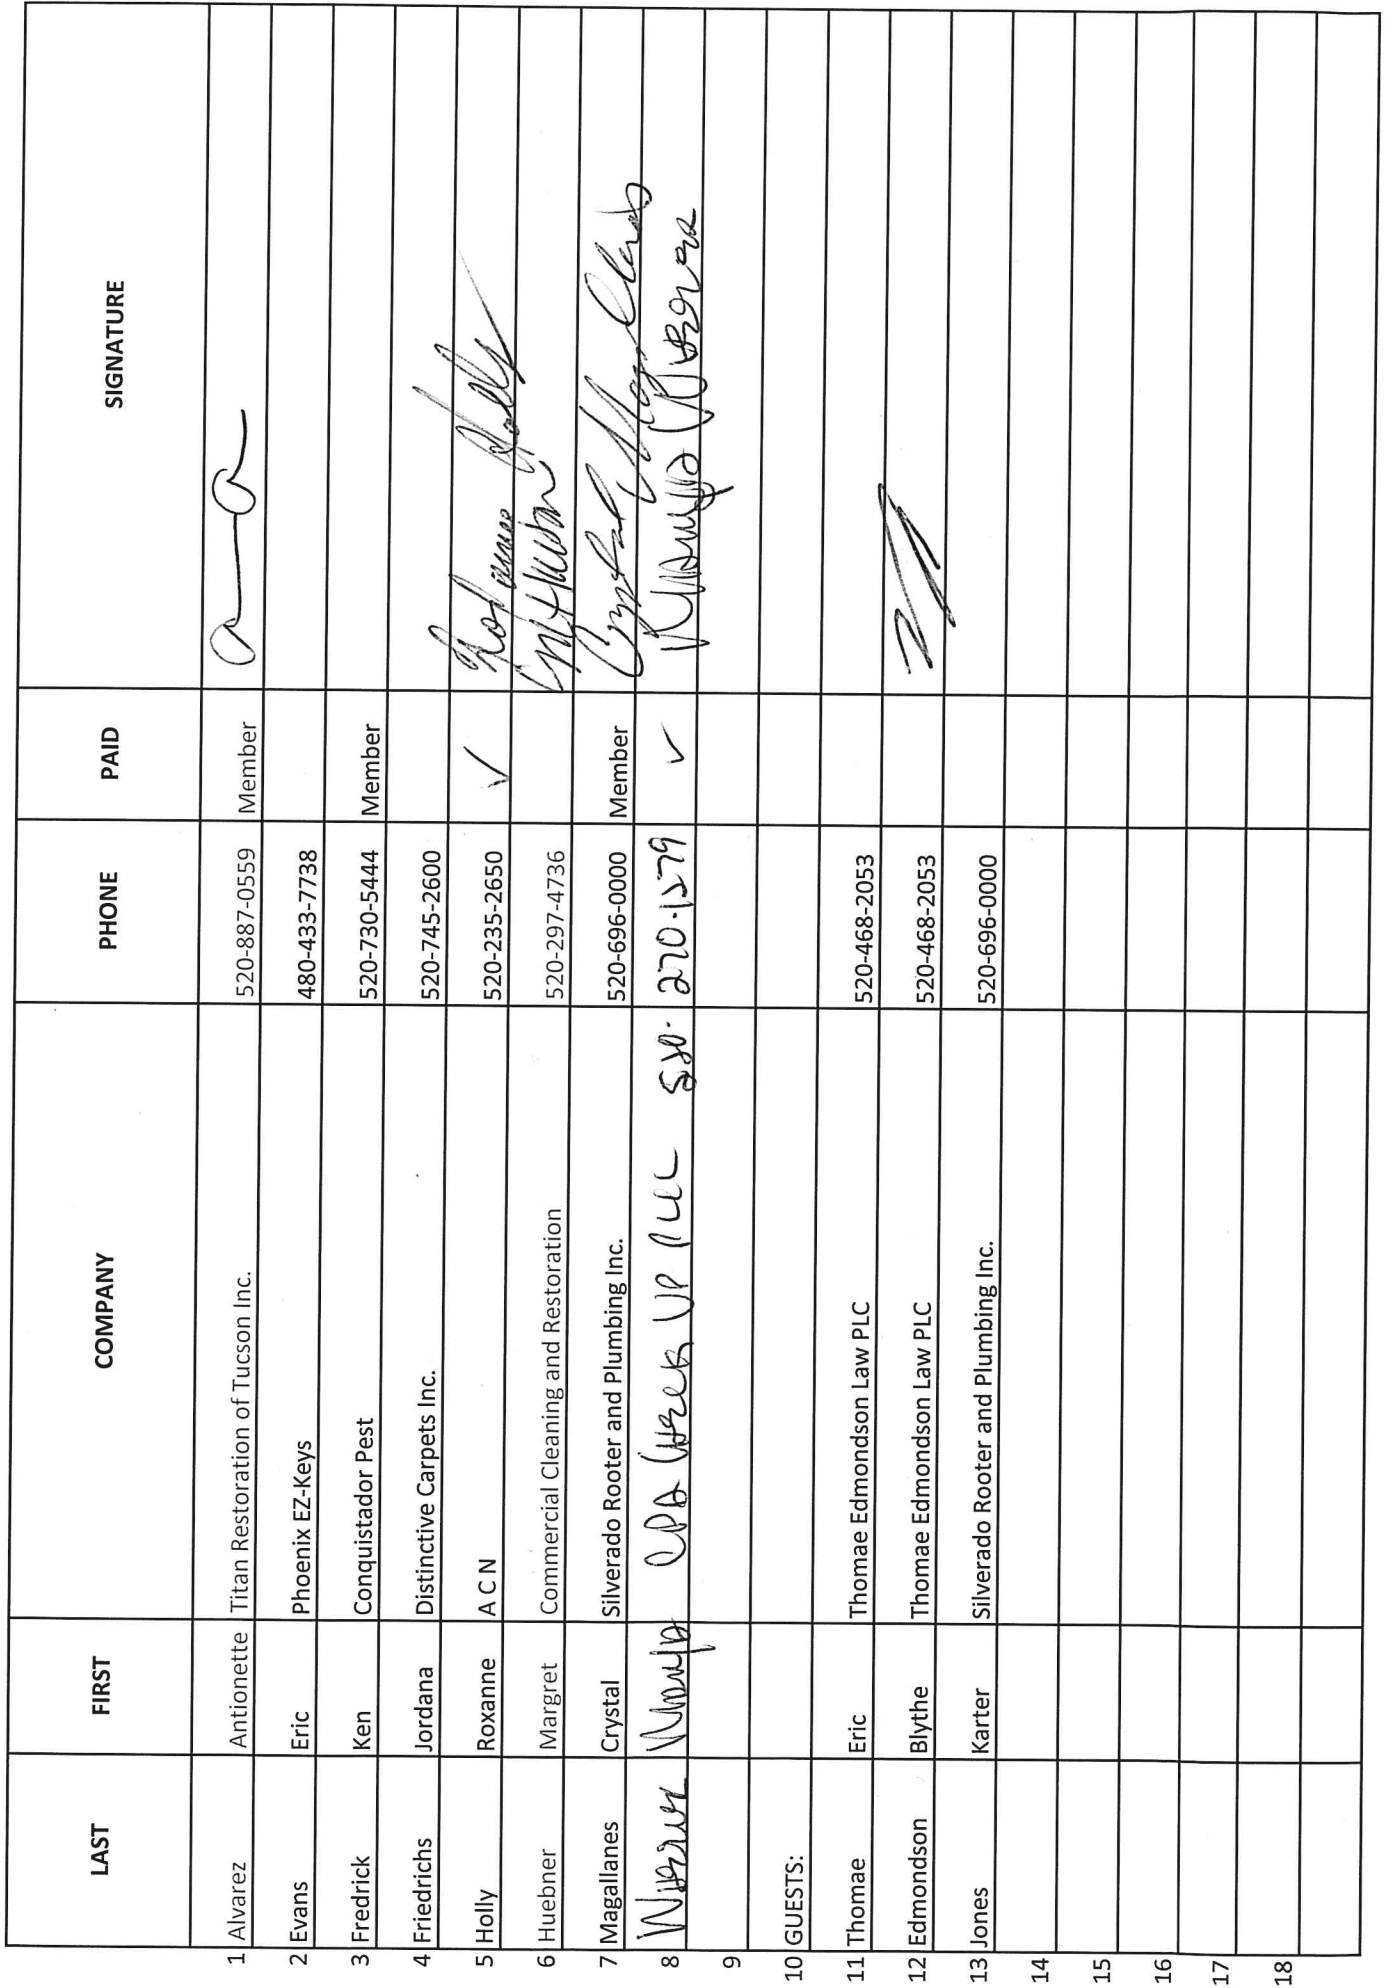 LAST FIRST COMPANY PHONE PAID SIGNATURE
1 Alvarez Antionette Titan Restoration of Tucson Inc. 520-887-0559 Member
2 Evans Eric Phoenix EZ-Keys 480-433-7738
3 Fredrick Ken Conquistador Pest 520-730-5444 Member
4 Friedrichs Jordana Distinctive Carpets Inc. 520-745-2600
5 Holly Roxanne A C N 520-235-2650 ✓ Roxanne Holly
6 Huebner Margret Commercial Cleaning and Restoration 520-297-4736
7 Magallanes Crystal Silverado Rooter and Plumbing Inc. 520-696-0000 Member Crystal Magallanes
8 CPA UP PLLC 520. 270.1579 ✓
9
10 GUESTS:
11 Thomae Eric Thomae Edmondson Law PLC 520-468-2053
12 Edmondson Blythe Thomae Edmondson Law PLC 520-468-2053
13 Jones Karter Silverado Rooter and Plumbing Inc. 520-696-0000
14
15
16
17
18